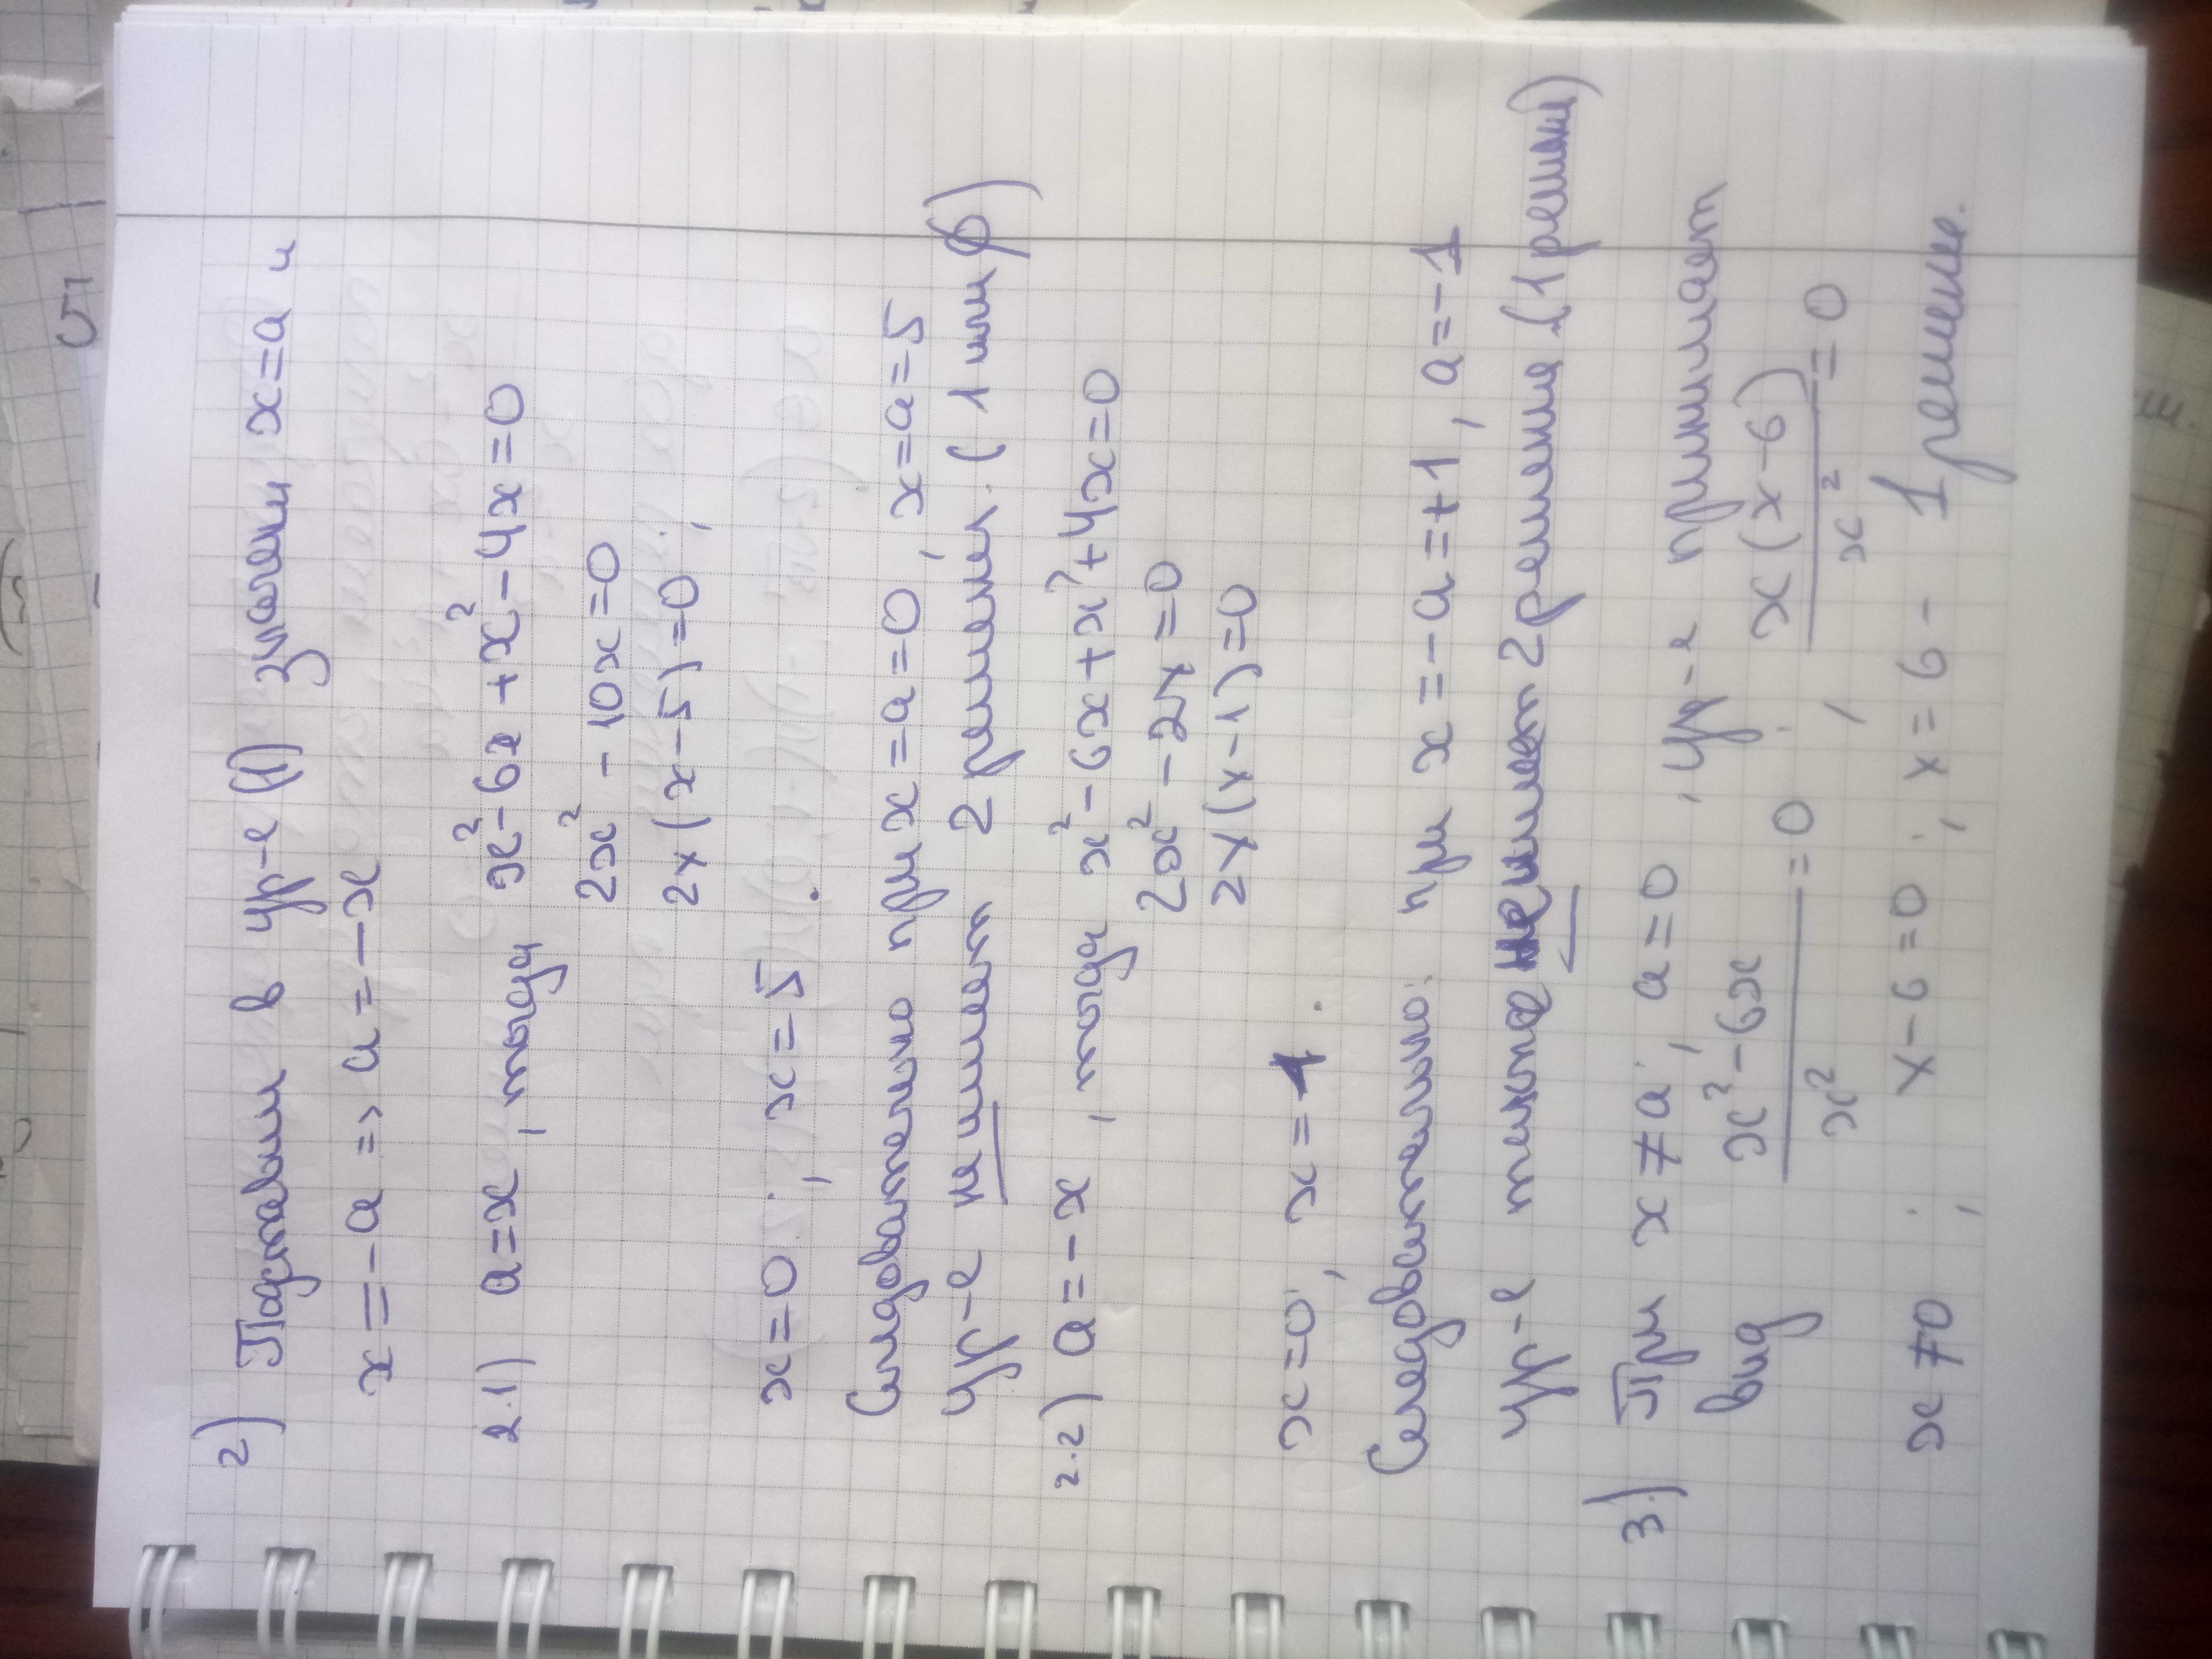 2) Подставим в ур-е (1) значения x=a и
x=-a => a=-x
2.1) a=x, тогда x²-6x+x²-4x=0
2x²-10x=0
2x(x-5)=0,
x=0; x=5.
Следовательно при x=a=0, x=a=5
ур-е не имеет 2 решения. (1 или ∅)
2.2) a=-x, тогда x²-6x+x²+4x=0
2x²-2x=0
2x(x-1)=0
x=0; x=1.
Следовательно: при x=-a=+1, a=-1
ур-е не имеет 2 решения (1 решение)
3.) При x≠a; a=0, ур-е принимает
вид x²-6x/x²=0; x(x-6)/x²=0
x≠0; x-6=0; x=6 - 1 решение.
5